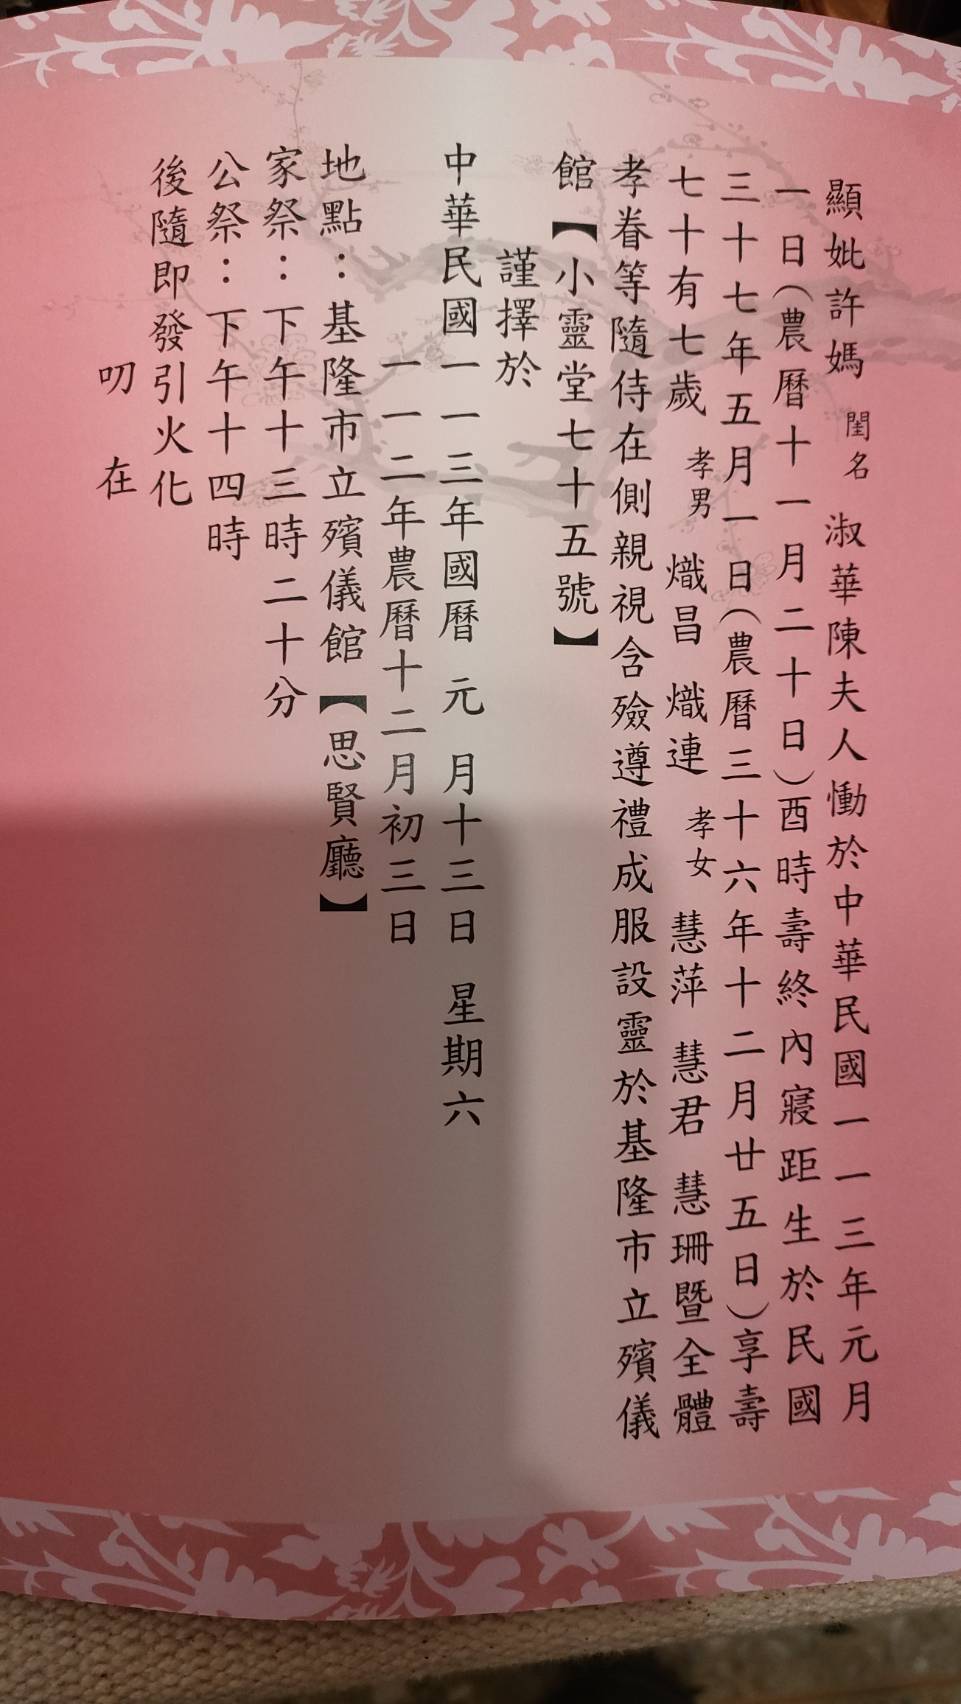 顯妣許媽 閨名 淑華陳夫人慟於中華民國一一三年元月
一日(農曆十一月二十日)酉時壽終內寢距生於民國
三十七年五月一日(農曆三十六年十二月廿五日)享壽
七十有七歲 孝男 熾昌 熾連 孝女 慧萍 慧君 慧珊暨全體
孝眷等隨侍在側親視含殮遵禮成服設靈於基隆市立殯儀
館【小靈堂七十五號】
謹擇於
中華民國一一三年國曆 元 月十三日 星期六
一一二年農曆十二月初三日
地點:基隆市立殯儀館【思賢廳】
家祭:下午十三時二十分
公祭:下午十四時
後隨即發引火化
叨 在